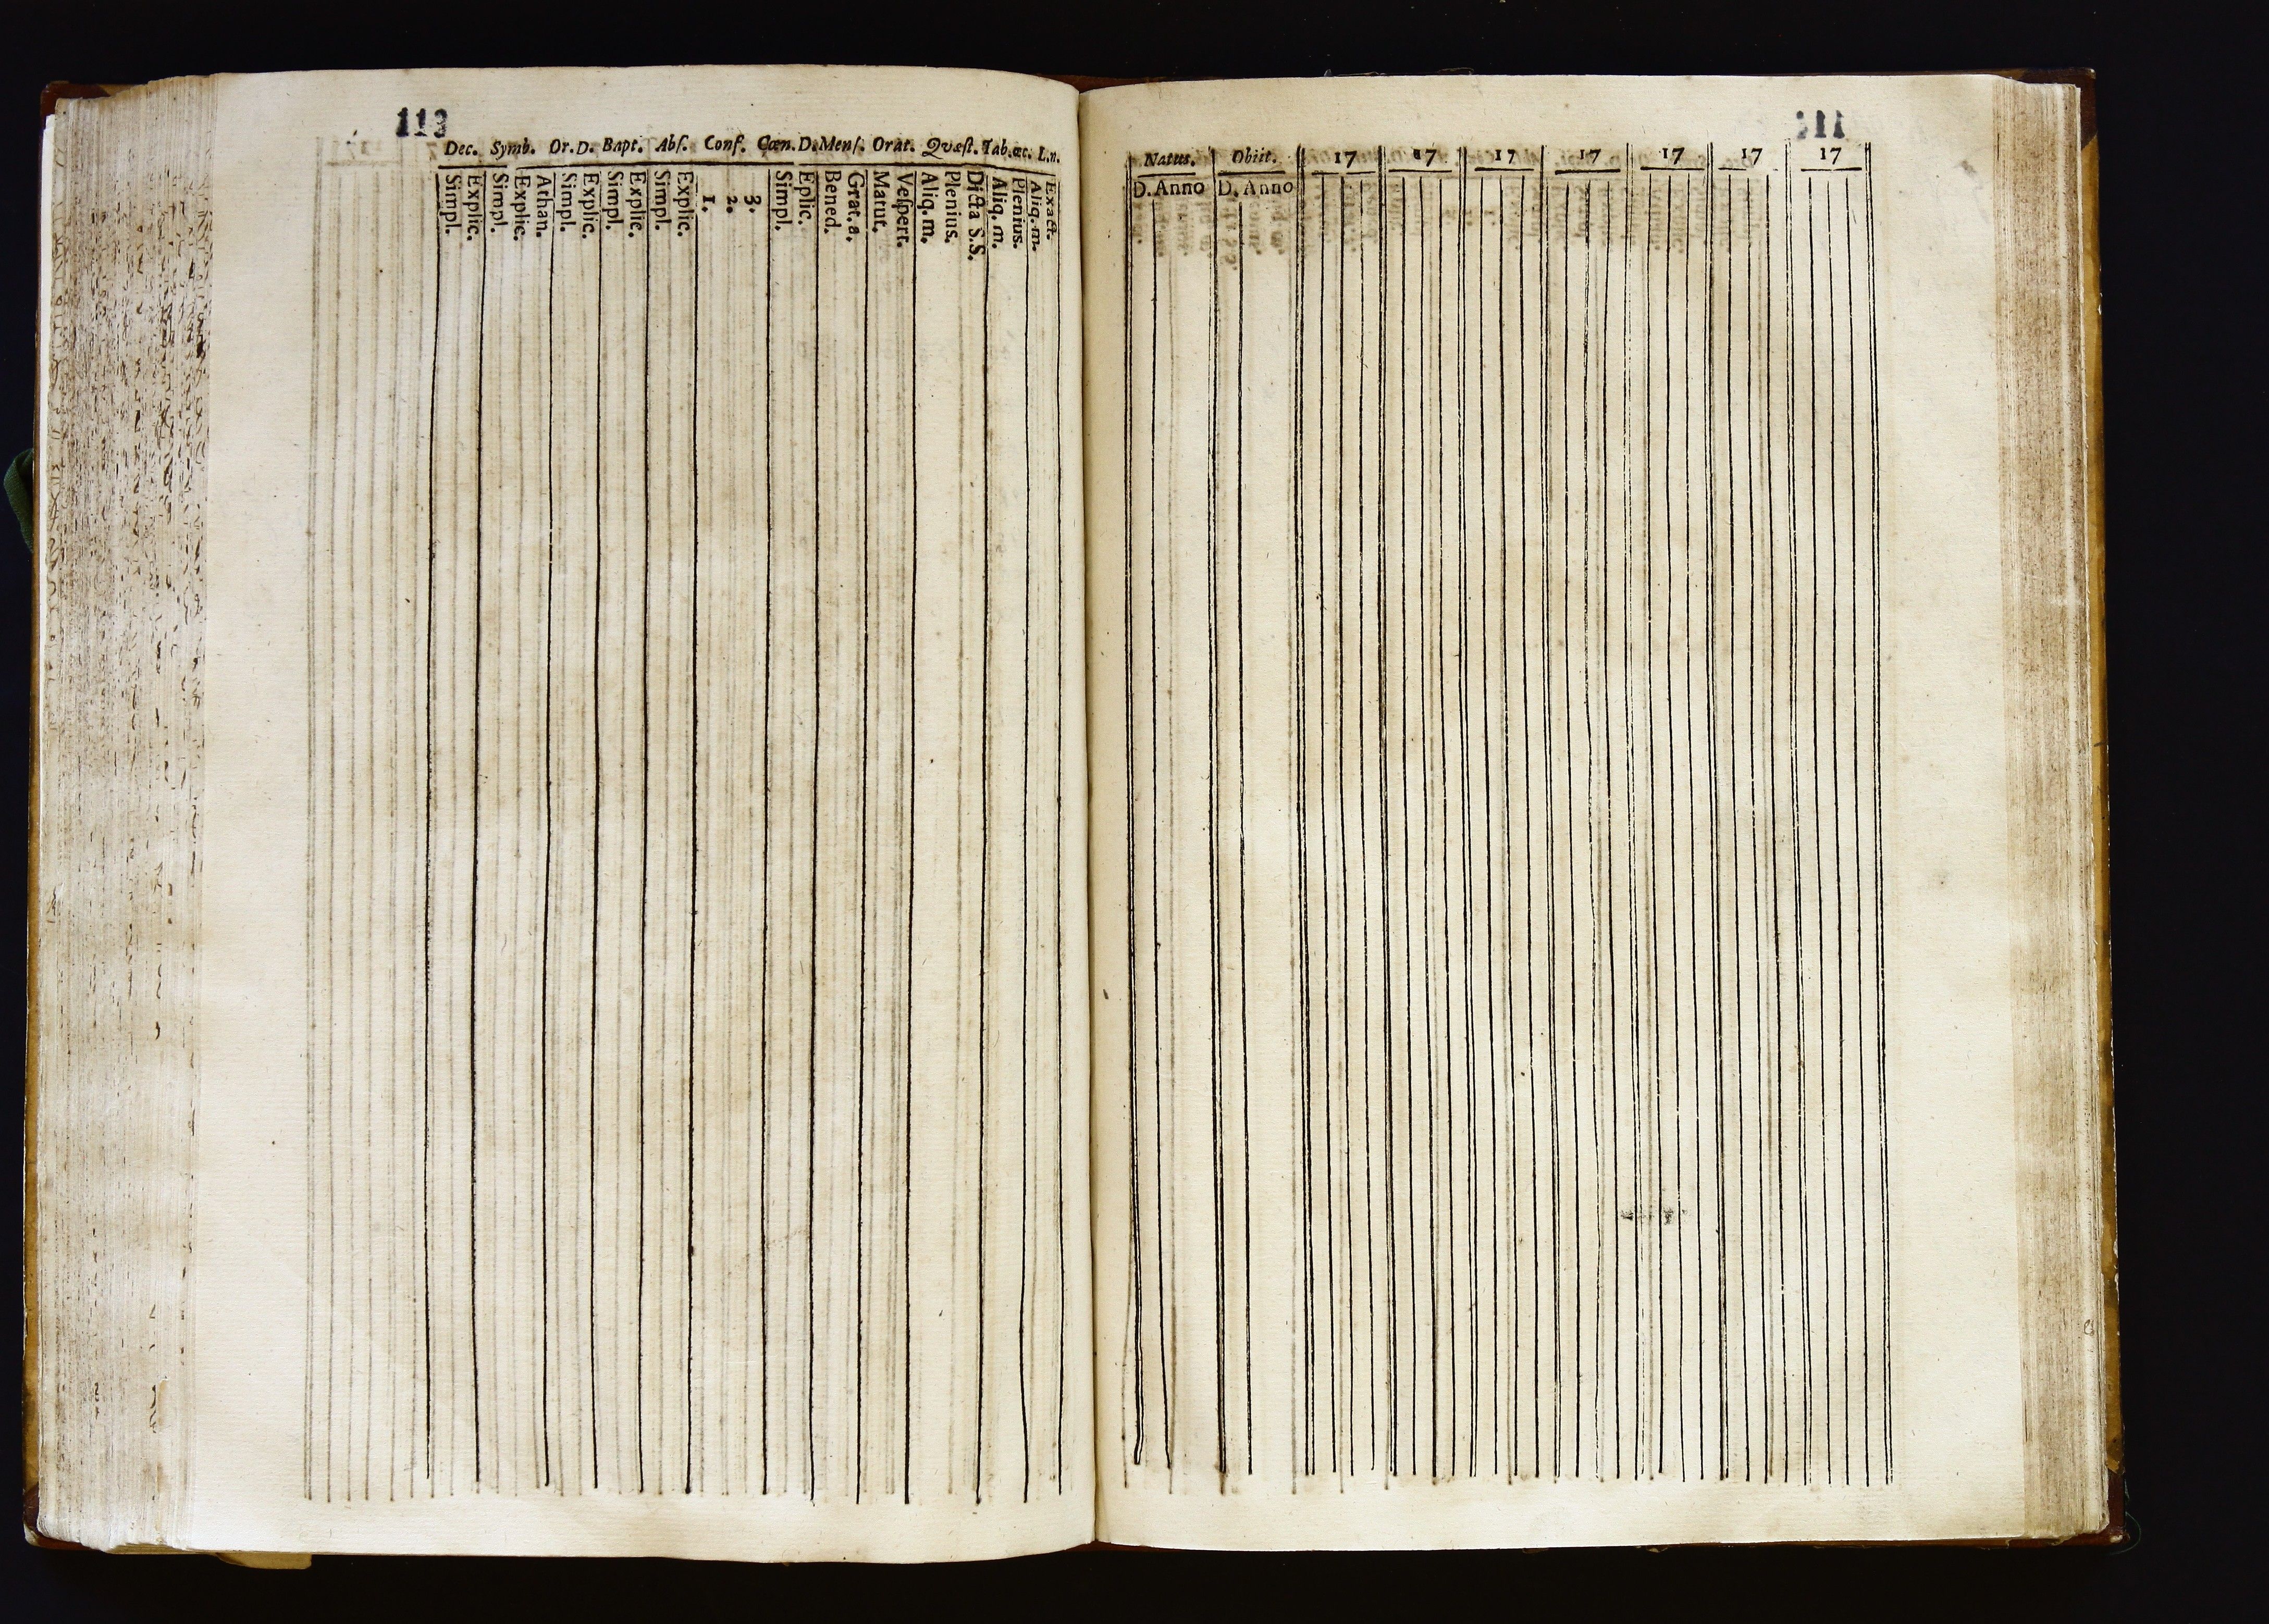 113
Dec. Symb. Or. D. Bapt. Abſ. Conf. Cœn. D. Menſ. Orat. Qvæſt. Tab. œc. L. n.
Simpl. Explic. Simpl. Explic. Athan. Simpl. Explic. Simpl. Explic. Simpl. Explic. 1. 2. 3. Simpl. Eplic. Bened. Grat. a. Matut. Veſpert. Aliq. m. Plenius. Dicta S.S. Aliq. m. Plenius. Aliq. m. Exact.
Natus. Obiit. 17 17 17 17 17 17 17
D. Anno D. Anno